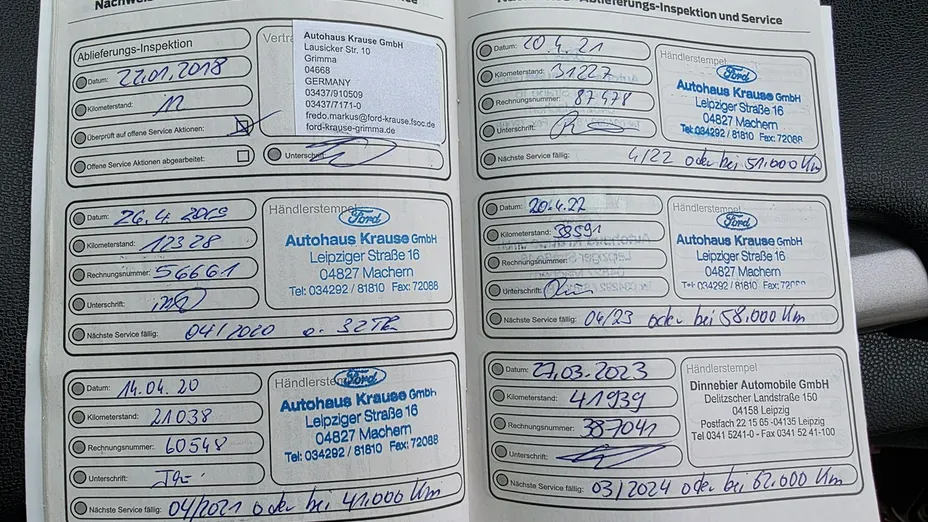 Ablieferungs-Inspektion
Datum: 22.01.2018
Kilometerstand: 12
Überprüft auf offene Service Aktionen:
Offene Service Aktionen abgearbeitet:
Autohaus Krause GmbH
Lausicker Str. 10
Grimma
04668
GERMANY
03437/910509
03437/7171-0
fredo.markus@ford-krause.fsoc.de
ford-krause-grimma.de
Unterschrift
Datum: 26.4
Kilometerstand: 12328
Rechnungsnummer: 56661
Unterschrift:
Händlerstempel
Ford
Autohaus Krause GmbH
Leipziger Straße 16
04827 Machern
Tel: 034292 / 81810 Fax: 72088
Nächste Service fällig: 04/2020
Datum: 14.04.20
Kilometerstand: 21038
Rechnungsnummer: 60548
Unterschrift:
Händlerstempel
Ford
Autohaus Krause GmbH
Leipziger Straße 16
04827 Machern
Tel: 034292 / 81810 Fax: 72088
Nächste Service fällig: 04/2021 oder bei 41.000 Km
Ablieferungs-Inspektion und Service
Datum: 20.4.21
Kilometerstand: 31227
Rechnungsnummer: 87478
Unterschrift:
Händlerstempel
Ford
Autohaus Krause GmbH
Leipziger Straße 16
04827 Machern
Tel: 034292 / 81810 Fax: 72088
Nächste Service fällig: 4/22 oder bei 51.000 Km
Datum: 20.4.22
Kilometerstand: 38591
Rechnungsnummer:
Unterschrift:
Händlerstempel
Ford
Autohaus Krause GmbH
Leipziger Straße 16
04827 Machern
034292 / 81810
Nächste Service fällig: 04/23 oder bei 58.000 Km
Datum: 27.03.2023
Kilometerstand: 41939
Rechnungsnummer: 387041
Unterschrift:
Händlerstempel
Dinnebier Automobile GmbH
Delitzscher Landstraße 150
04158 Leipzig
Postfach 22 15 65 -04135 Leipzig
Tel 0341 5241-0 - Fax 0341 52 41-100
Nächste Service fällig: 03/2024 oder bei 62.000 Km